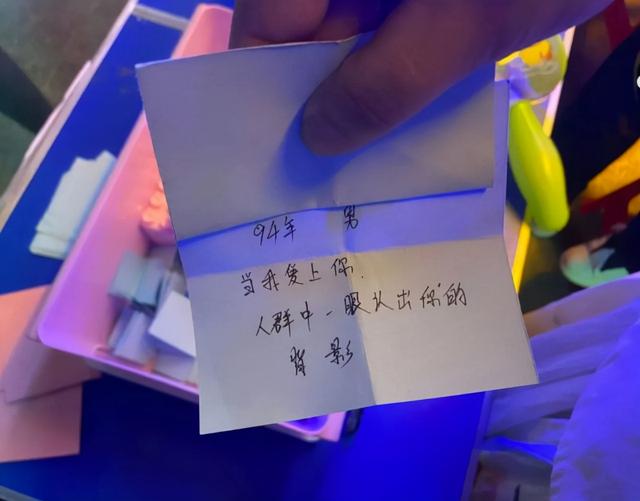 94年 男
当我爱上你.
人群中一眼认出你的
背影